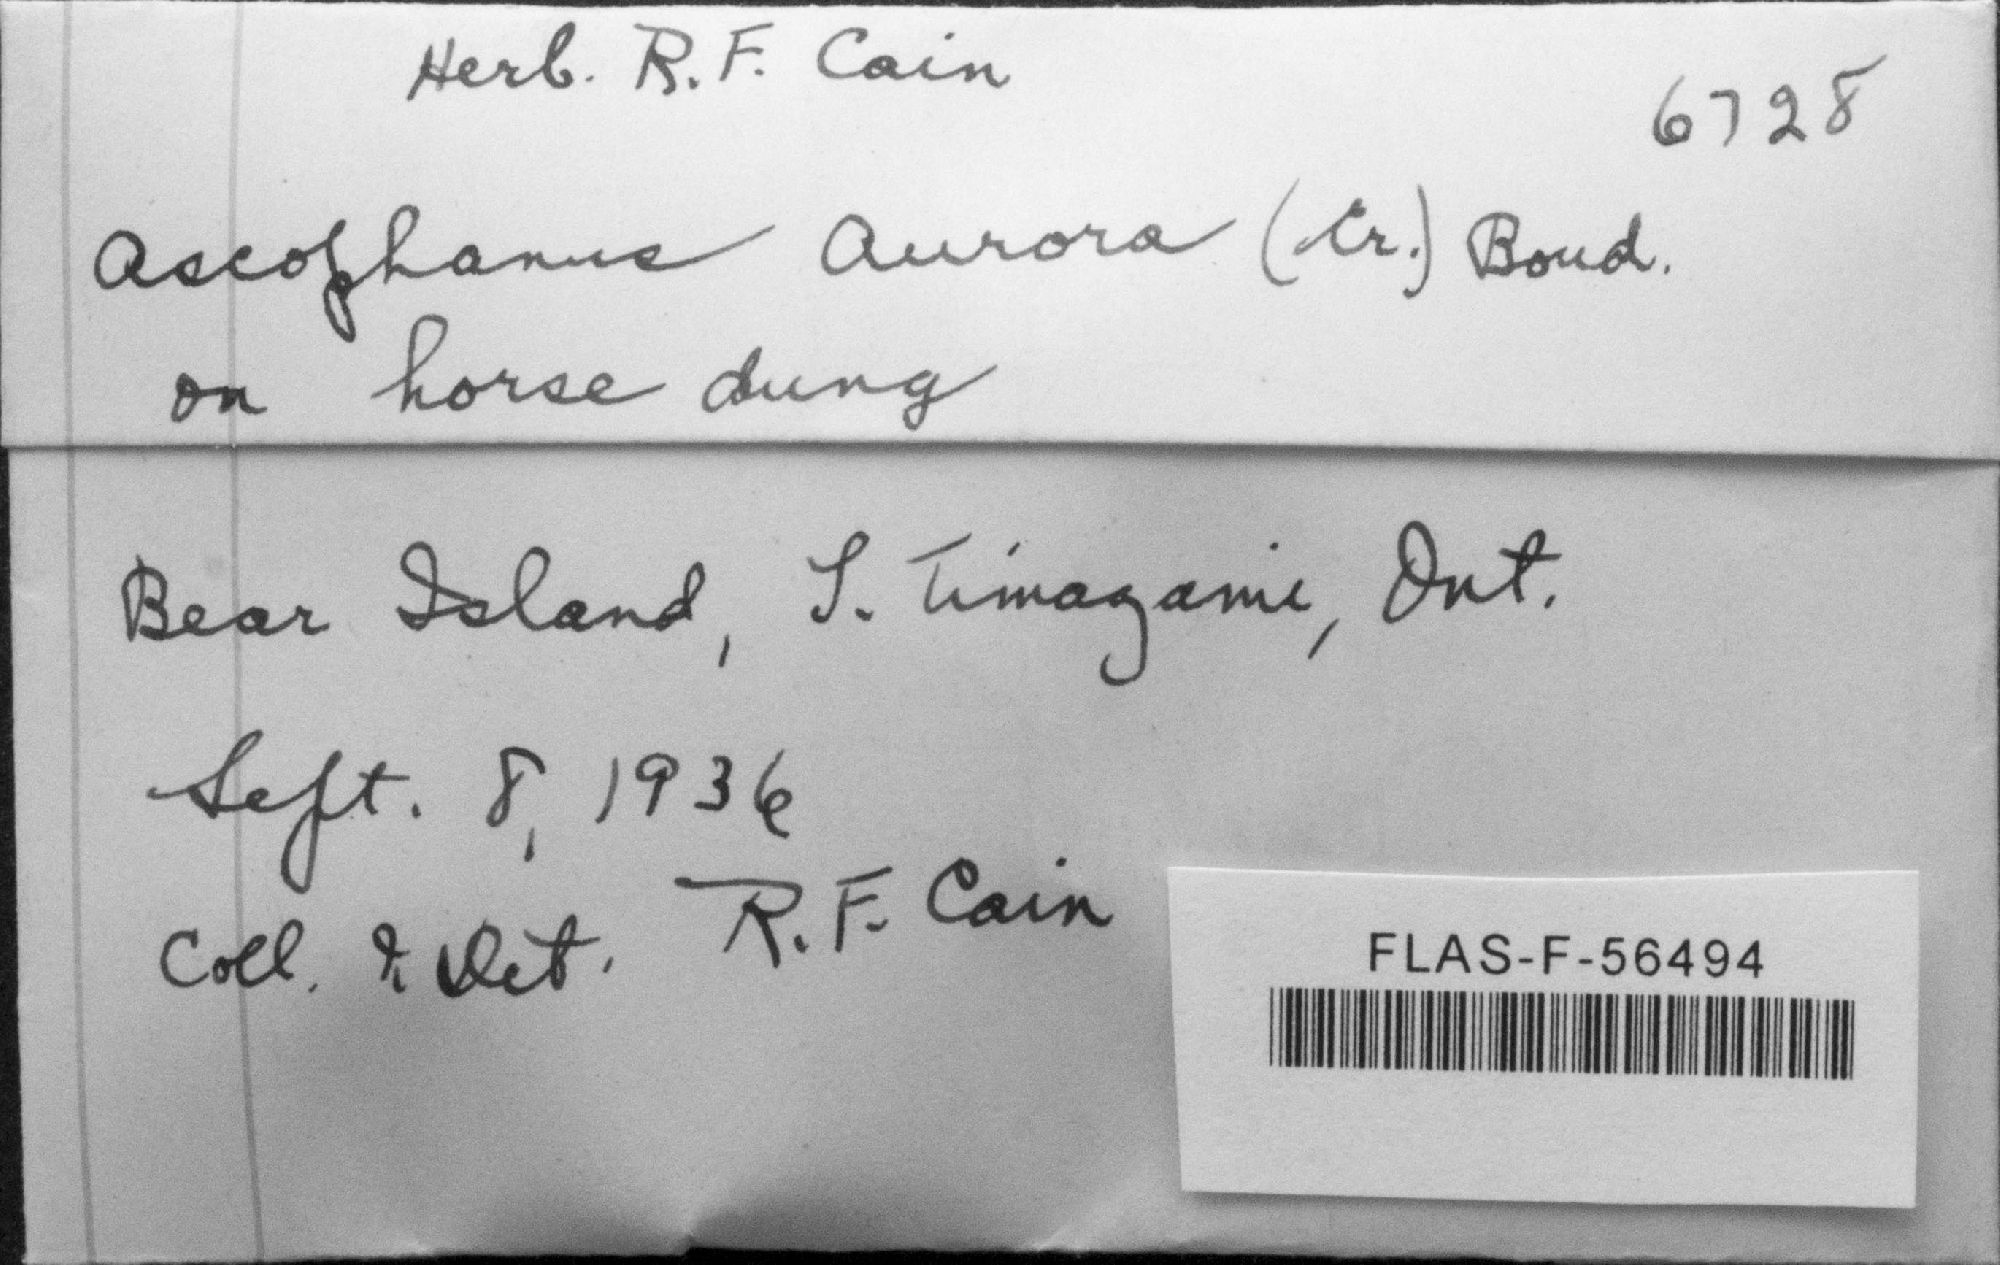 Herb. R. F. Cain
6728
Ascophanus Aurora (Cr.) Boud.
on horse dung
Bear Island, L. Timagami, Ont.
Sept. 8, 1936
Coll. & Det. R. F. Cain
FLAS-F-56494